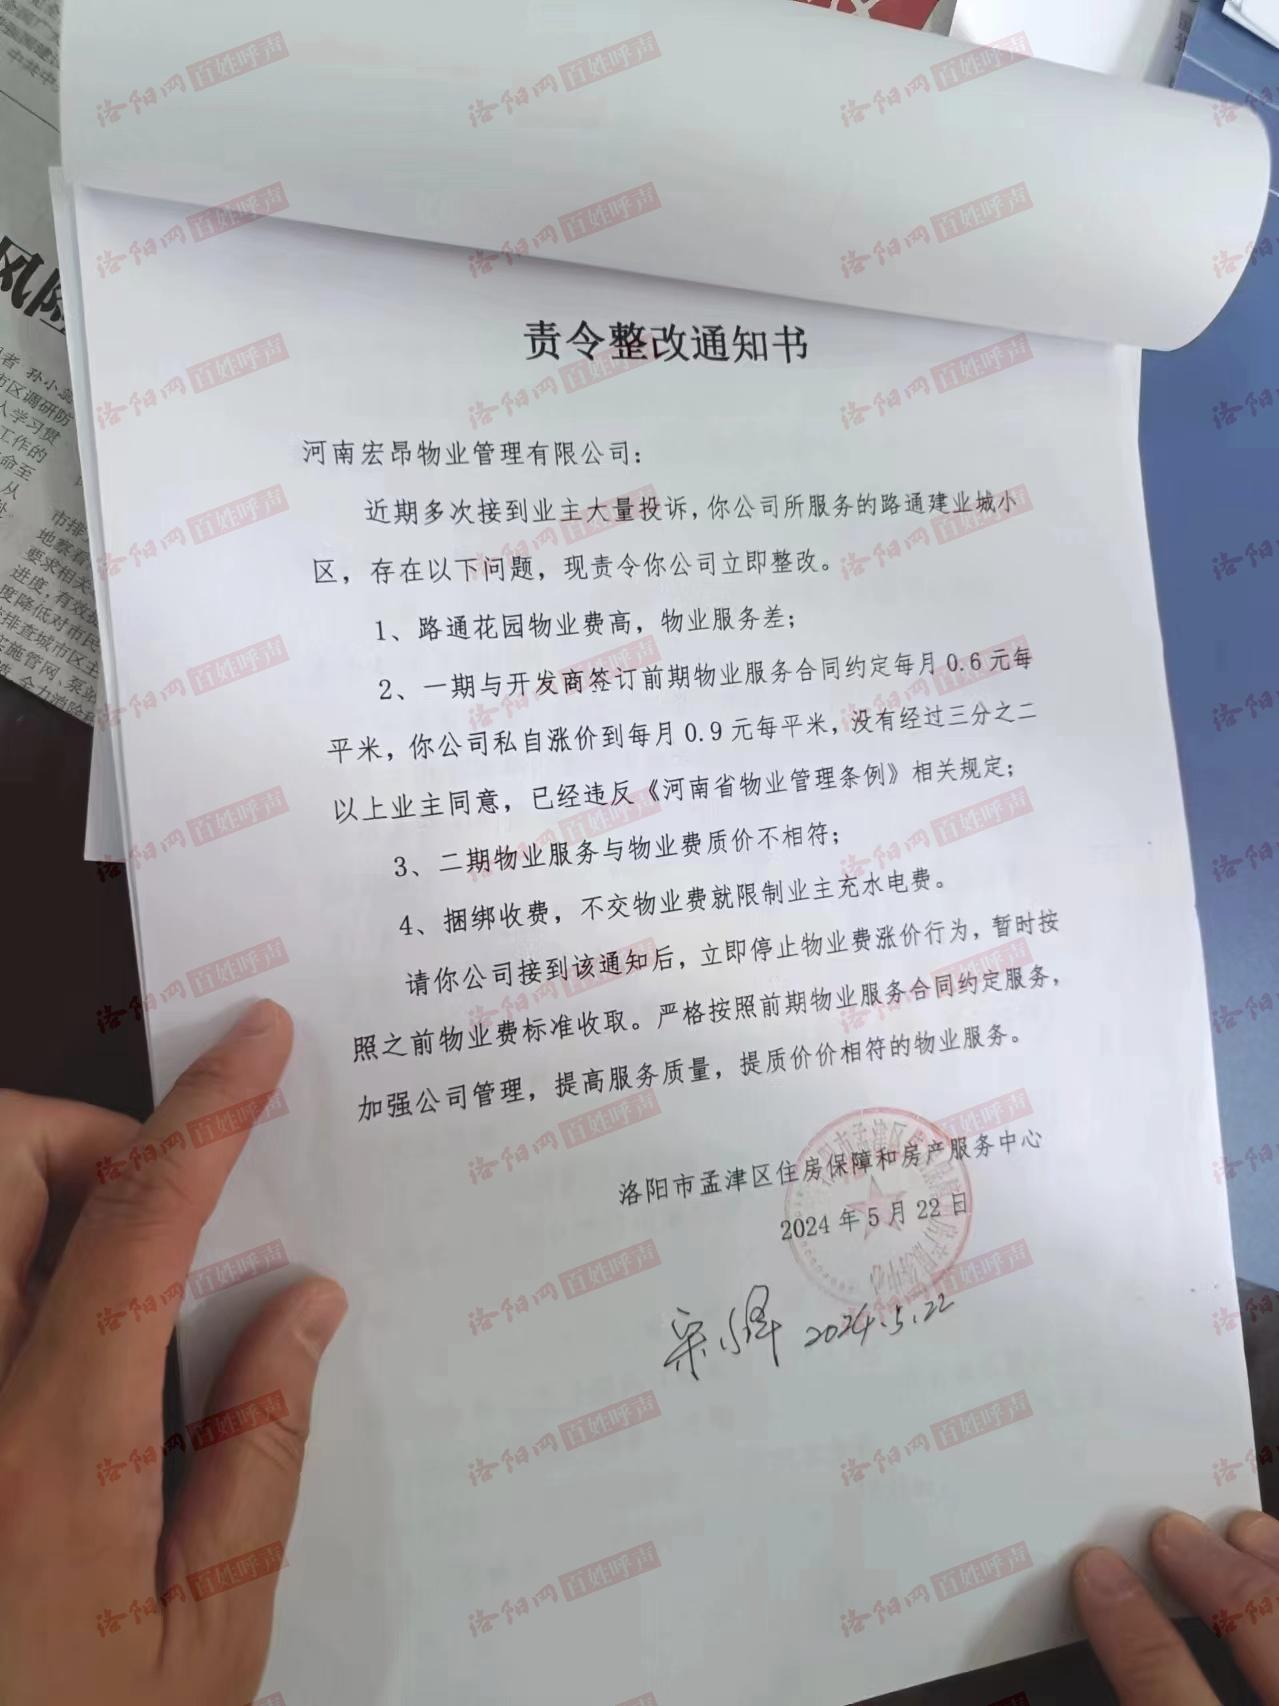 责令整改通知书
河南宏昂物业管理有限公司：
近期多次接到业主大量投诉，你公司所服务的路通建业城小
区，存在以下问题，现责令你公司立即整改。
1、路通花园物业费高，物业服务差；
2、一期与开发商签订前期物业服务合同约定每月0.6元每
平米，你公司私自涨价到每月0.9元每平米，没有经过三分之二
以上业主同意，已经违反《河南省物业管理条例》相关规定；
3、二期物业服务与物业费质价不相符；
4、捆绑收费，不交物业费就限制业主充水电费。
请你公司接到该通知后，立即停止物业费涨价行为，暂时按
照之前物业费标准收取。严格按照前期物业服务合同约定服务，
加强公司管理，提高服务质量，提质价价相符的物业服务。
洛阳市孟津区住房保障和房产服务中心
2024年5月22日
2024.5.22
洛阳网 百姓呼声
风险
者 孙小蕊
市区调研防
人学习贯
工作的
命至
从
市排
地察看
要求相关
进度，有效提
度降低对市民
排查城市区主
实施管网、泵站